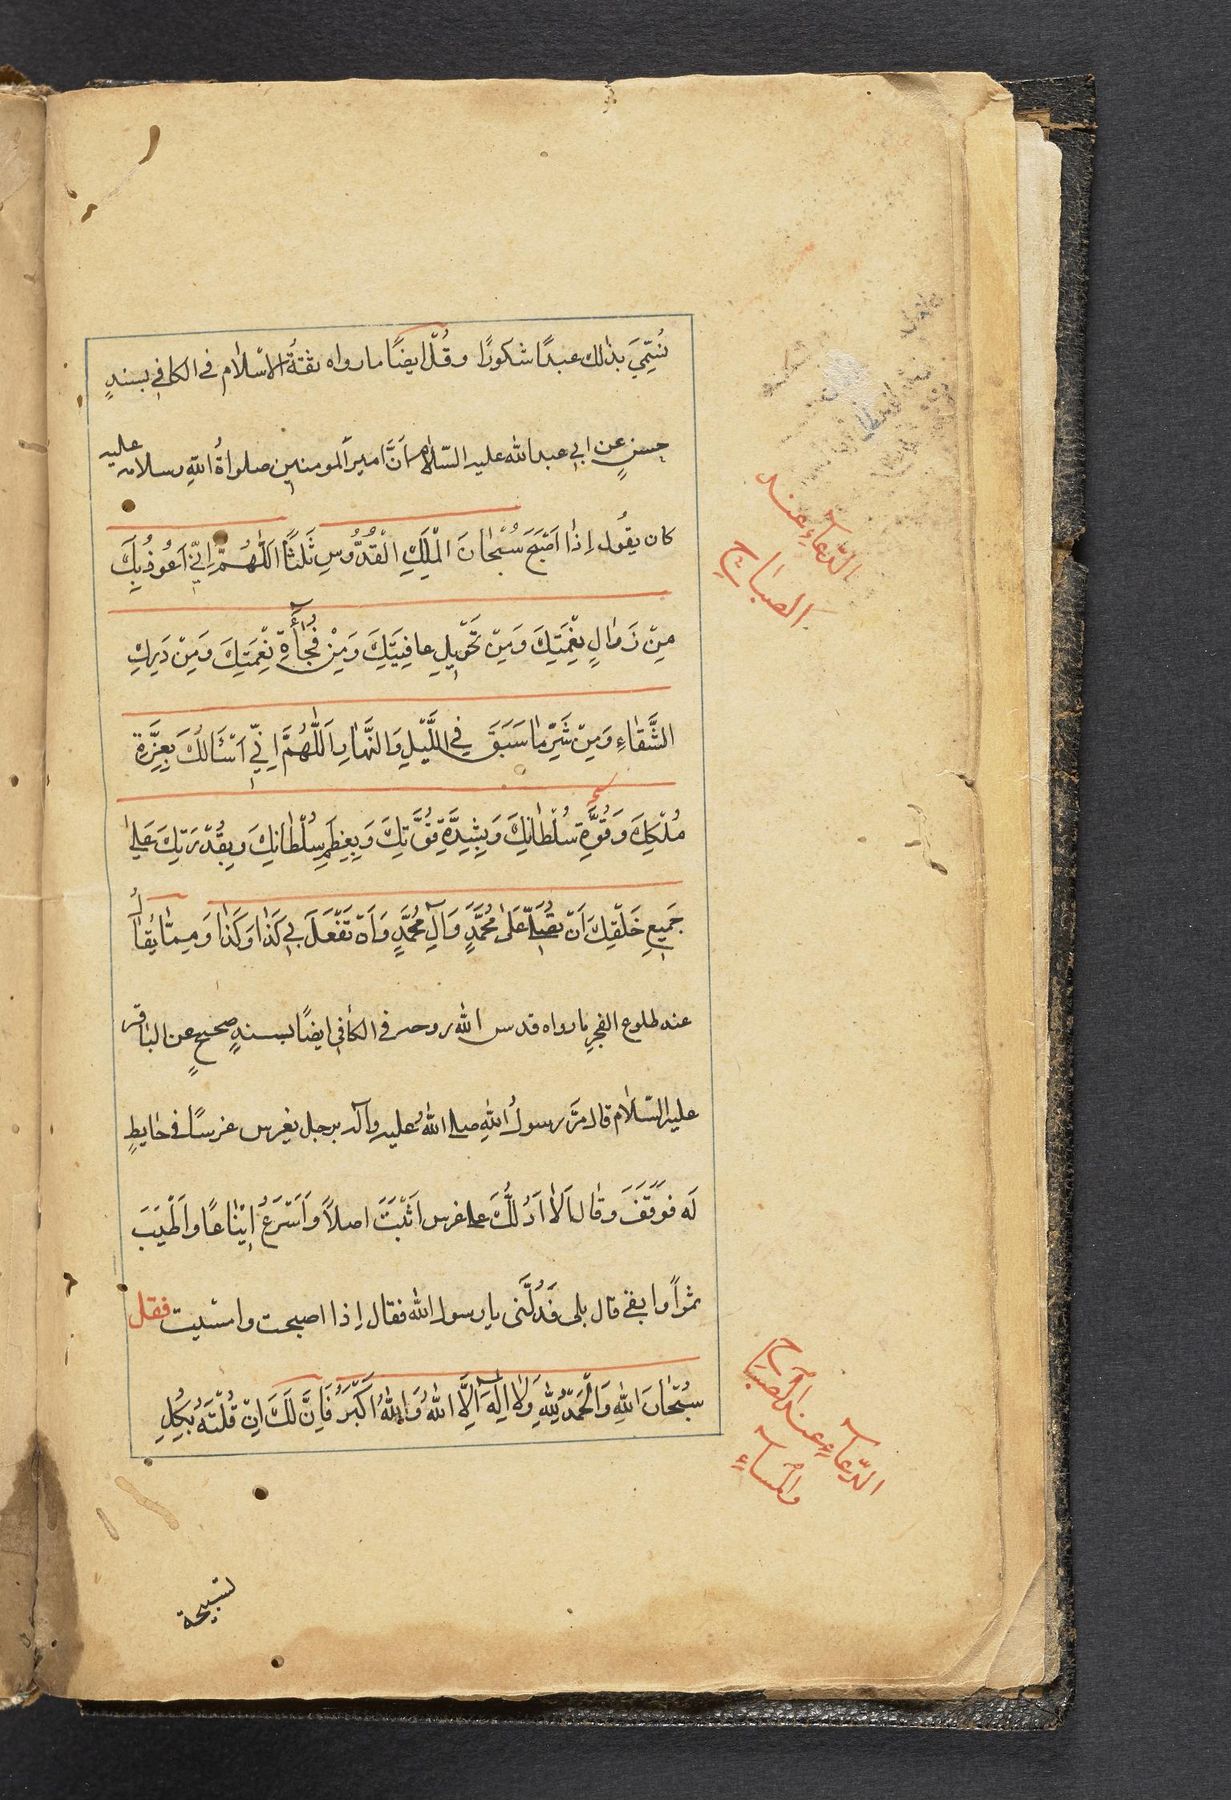 سُمِّيَ بذٰلك عبدًا شكورًا وقُل ايضًا ما رواه ثقةُ الاسْلام فى الكافى بسندٍ
حسنٍ عن ابى عبد الله عليه السّلام انَّ امير المومنين صلواةُ اللهِ وسلامه عليه
كان يقُول اِذٰا اَصْبَحَ سُبْحٰانَ الْمَلِكِ الْقُدُّوسِ ثَلٰثًا اَللّٰهُمَّ اِنّى اَعُوذُ بِكَ
مِنْ زَوٰالِ نِعْمَتِكَ وَمِنْ تَحْوِيلِ عافِيَتِكَ وَمِنْ فَجْأَةِ نِقْمَتِكَ وَمِنْ دَرَكِ
الشَّقٰاءِ وَمِنْ شَرِّ مٰا سَبَقَ فِى اللَّيْلِ وَالنَّهٰارِ اَللّٰهُمَّ اِنّى اَسْئَالُكَ بِعِزَّةِ
مُلْكِكَ وَقُوَّةِ سُلْطٰانِكَ وَبِشِدَّةِ قُوَّتِكَ وَبِعِظَمِ سُلْطٰانِكَ وَبِقُدْرَتِكَ عَلىٰ
جَميعِ خَلْقِكَ اَنْ تُصَلِّىَ عَلىٰ مُحَمَّدٍ وَآلِ مُحَمَّدٍ وَاَنْ تَفْعَلَ بى كَذٰا وَكَذٰا وَممّٰا يُقٰالُ
عند طلوع الفجرِ ما رواه قدس الله روحه فى الكافى ايضًا بسندٍ صحيحٍ عن الباقر
عليه السّلام قال مرَّ رسولُ اللهِ صلى اللهُ عليه وآله برجل يغرس غرسًا فى حٰايطٍ
لَه فوَقَفَ وقٰال اَلاٰ اَدُلُّكَ على غرس اَثْبَتَ اصلاً وَاَسْرَعُ اِيْنٰاعًا واَطْيَبَ
ثمراً وابقى قال بلى فَدُلَّنى يا رسول الله فقال اِذا اصبحت وامسَيت فقل
سُبْحٰانَ اللهِ وَالْحَمْدُ لِلّٰهِ وَلاٰ اِلٰهَ اِلَّا اللهُ وَاللهُ اَكْبَرُ فَاِنَّ لَكَ اِنْ قُلْتَهُ بِكُلِّ
تسبيحة
الدّعاء عند
الصباح
الدّعاء عند الصباح
والمساء